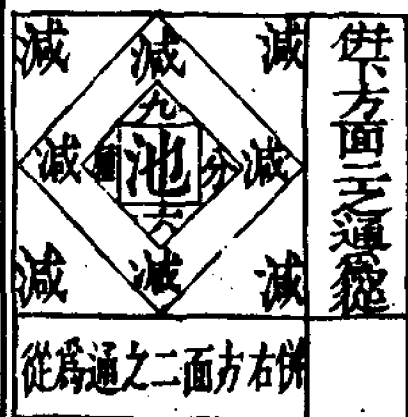 併下方面二之通爲從
減 減 減
九
減 池 分 減
減 減 減
併右方面二之通爲從